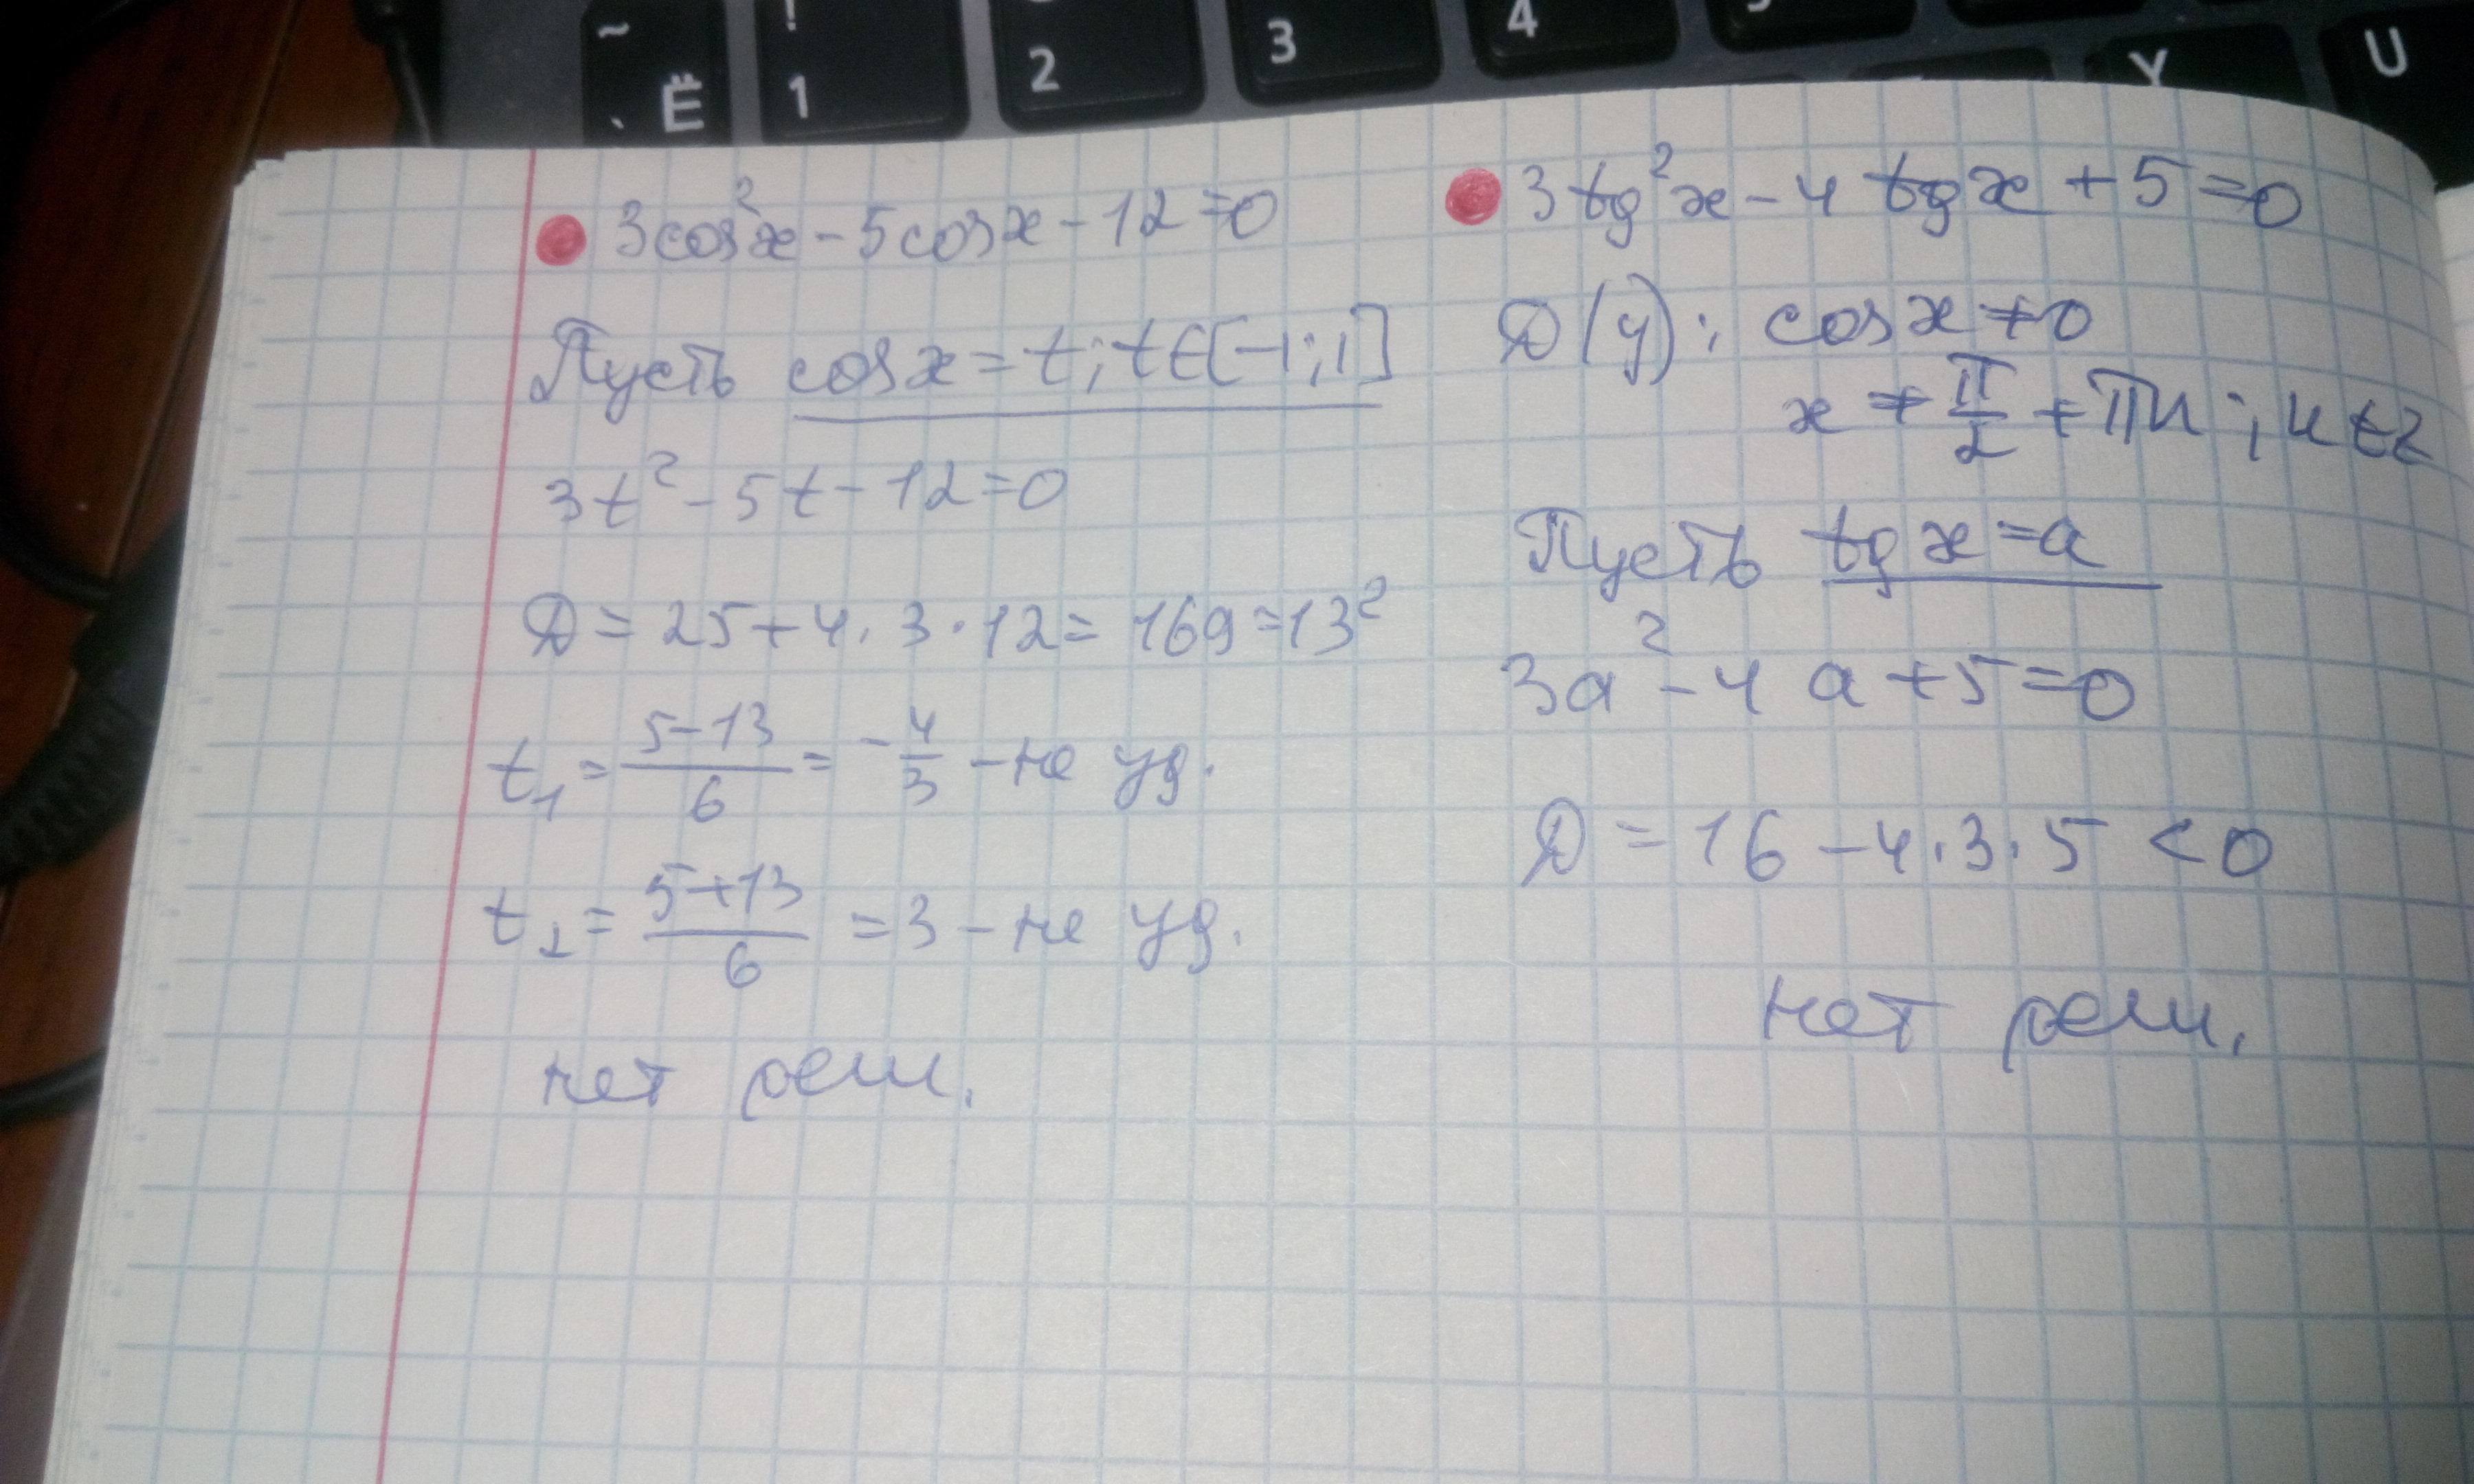 ~ ! 
` Ё 1 2 3 4 Y U
3cos²x - 5cosx - 12 = 0
Пусть cosx = t; t∈[-1;1]
3t² - 5t - 12 = 0
D = 25 + 4·3·12 = 169 = 13²
t₁ = (5-13)/6 = -4/3 - не уд.
t₂ = (5+13)/6 = 3 - не уд.
нет реш.
3tg²x - 4tgx + 5 = 0
D(y): cosx ≠ 0
x ≠ π/2 + πn; n∈Z
Пусть tgx = a
3a² - 4a + 5 = 0
D = 16 - 4·3·5 < 0
нет реш.